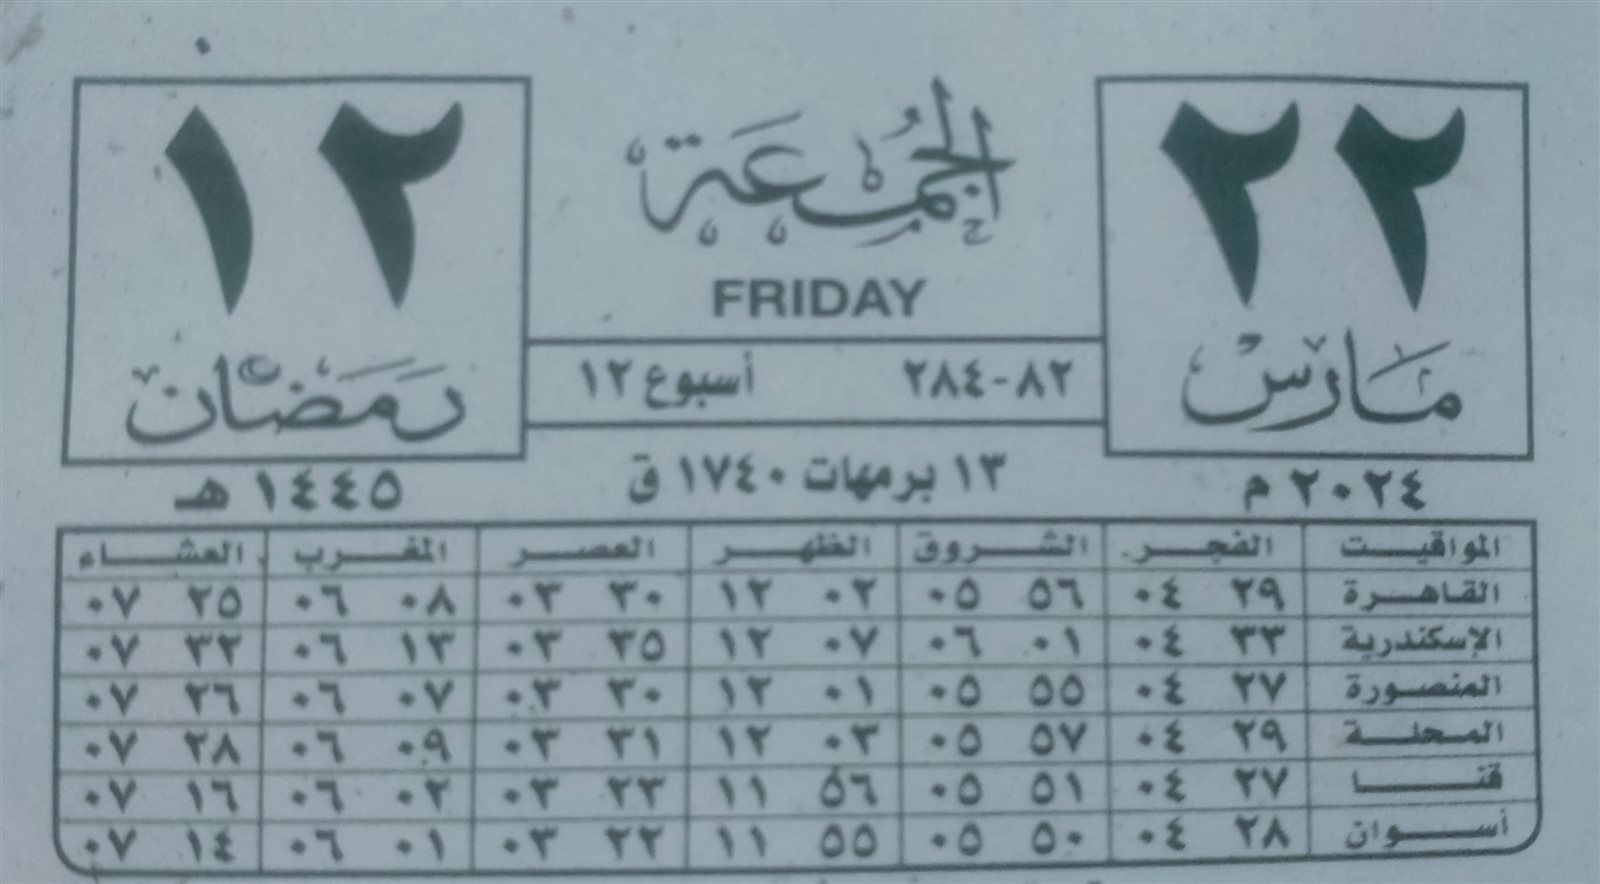 ٢٢
مارس
٢٠٢٤ م
الجمعة
FRIDAY
٨٢-٢٨٤ أسبوع ١٢
١٣ برمهات ١٧٤٠ ق
١٢
رمضان
١٤٤٥ هـ
المواقيت الفجر الشروق الظهر العصر المغرب العشاء
القاهرة ٢٩ ٠٤ ٥٦ ٠٥ ٠٢ ١٢ ٣٠ ٠٣ ٠٨ ٠٦ ٢٥ ٠٧
الإسكندرية ٣٣ ٠٤ ٠١ ٠٦ ٠٧ ١٢ ٣٥ ٠٣ ١٣ ٠٦ ٣٢ ٠٧
المنصورة ٢٧ ٠٤ ٥٥ ٠٥ ٠١ ١٢ ٣٠ ٠٣ ٠٧ ٠٦ ٢٦ ٠٧
المحلة ٢٩ ٠٤ ٥٧ ٠٥ ٠٣ ١٢ ٣١ ٠٣ ٠٩ ٠٦ ٢٨ ٠٧
قنا ٢٧ ٠٤ ٥١ ٠٥ ٥٦ ١١ ٢٣ ٠٣ ٠٢ ٠٦ ١٦ ٠٧
أسوان ٢٨ ٠٤ ٥٠ ٠٥ ٥٥ ١١ ٢٢ ٠٣ ٠١ ٠٦ ١٤ ٠٧